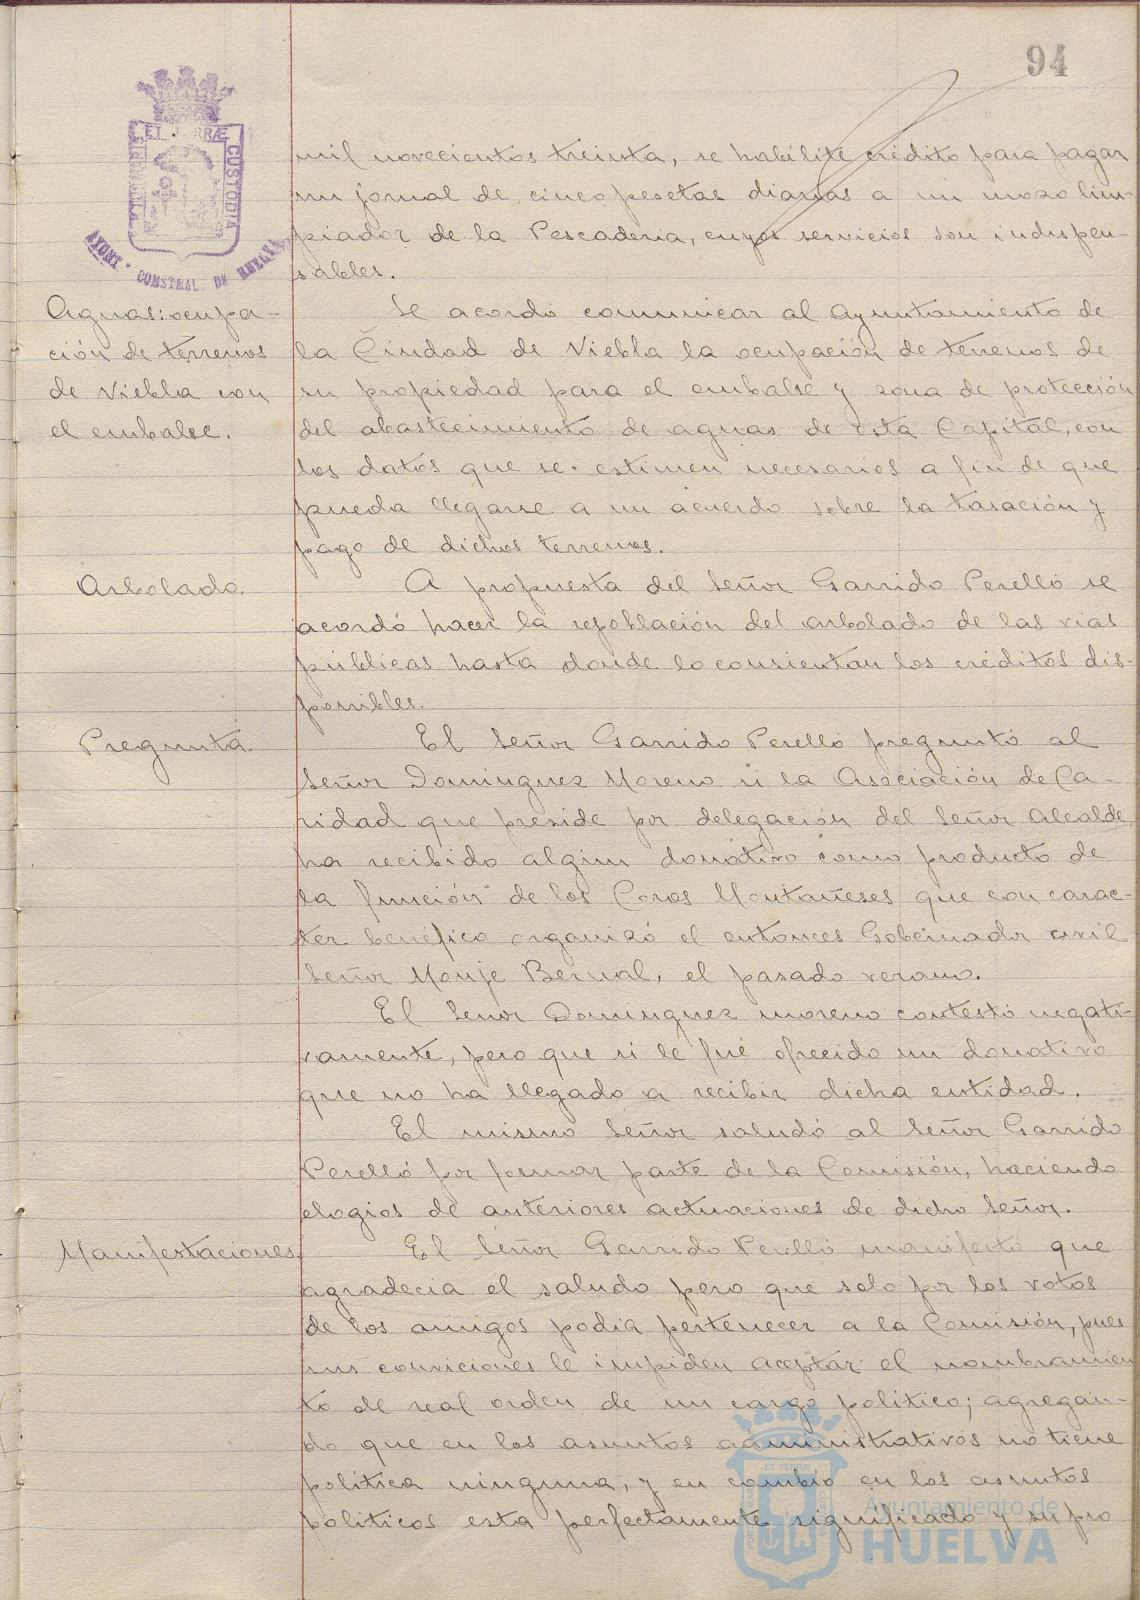 94
ET TERRÆ
CUSTODIA
AYUNT. CONSTNAL. DE HUELVA
mil novecientos treinta, se habilite crédito para pagar
un jornal de cinco pesetas diarias a un mozo lim-
piador de la Pescaderia, cuyos servicios son indispen-
sables.
Aguas: ocupa-
ción de terrenos
de Niebla con
el embalse.
Se acordó comunicar al Ayuntamiento de
la Ciudad de Niebla la ocupación de terrenos de
su propiedad para el embalse y zona de protección
del abastecimiento de aguas de esta Capital, con
los datos que se estimen necesarios a fin de que
pueda llegarse a un acuerdo sobre la tasación y
pago de dichos terrenos.
Arbolado.
A propuesta del Señor Garrido Perelló se
acordó hacer la repoblación del arbolado de las vias
públicas hasta donde lo consientan los créditos dis-
ponibles.
Pregunta.
El Señor Garrido Perelló preguntó al
Señor Dominguez Moreno si la Asociación de Ca-
ridad que preside por delegación del Señor Alcalde
ha recibido algún donativo como producto de
la función de los Coros Montañeses que con carac-
ter benéfico organizó el entonces Gobernador civil
Señor Monje Bernal, el pasado verano.
El Señor Dominguez Moreno contestó negati-
vamente, pero que si le fué ofrecido un donativo
que no ha llegado a recibir dicha entidad.
El mismo Señor saludó al Señor Garrido
Perelló por formar parte de la Comisión, haciendo
elogios de anteriores actuaciones de dicho Señor.
Manifestaciones.
El Señor Garrido Perelló manifestó que
agradecia el saludo pero que solo por los votos
de los amigos podia pertenecer a la Comisión, pues
sus conviciones le impiden aceptar el nombramien
to de real orden de un cargo político; agregan-
do que en los asuntos administrativos no tiene
política ninguna, y en cambio en los asuntos
politicos esta perfectamente significado y su pro
Ayuntamiento de
HUELVA